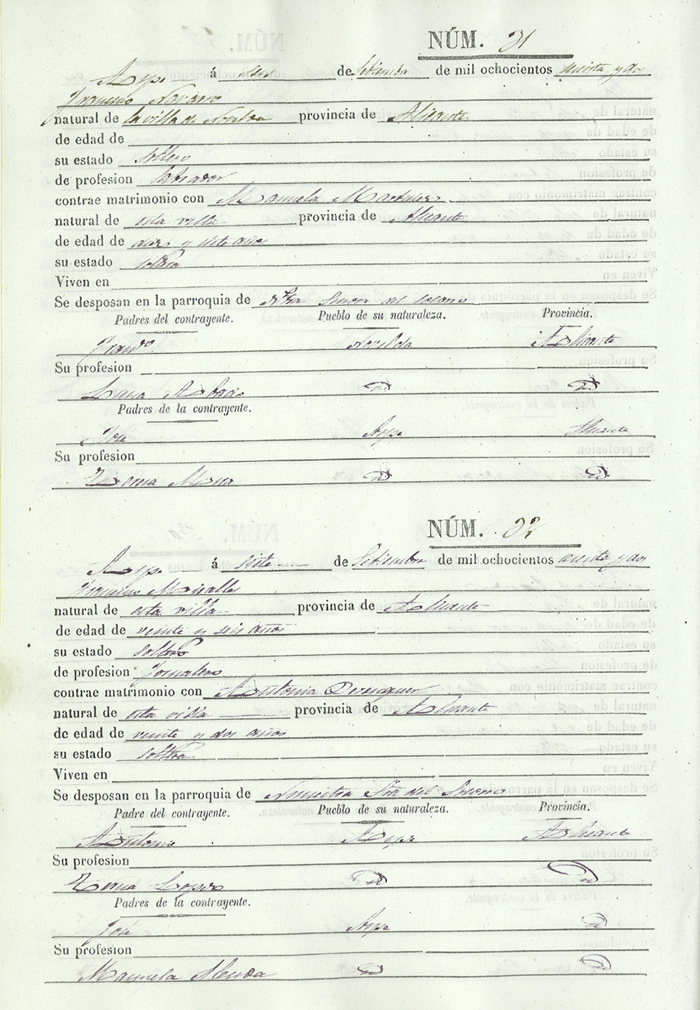 NÚM. 31
Aspe á seis de Setiembre de mil ochocientos
Francisco Navarro
natural de la villa de Novelda provincia de Alicante
de edad de
su estado soltero
de profesion labrador
contrae matrimonio con Manuela Martinez
natural de esta villa provincia de Alicante
de edad de diez y siete años
su estado soltera
Viven en
Se desposan en la parroquia de Ntra Señora del Socorro
Padres del contrayente. Pueblo de su naturaleza. Provincia.
Franco Novelda Alicante
Su profesion
Luisa Abad Id Id
Padres de la contrayente.
José Aspe Alicante
Su profesion
Teresa Mira Id Id
NÚM. 32
Aspe á siete de Setiembre de mil ochocientos
Francisco Miralles
natural de esta villa provincia de Alicante
de edad de veinte y seis años
su estado soltero
de profesion Jornalero
contrae matrimonio con Antonia
natural de esta villa provincia de Alicante
de edad de veinte y dos años
su estado soltera
Viven en
Se desposan en la parroquia de Nuestra Sra del Socorro
Padre del contrayente. Pueblo de su naturaleza. Provincia.
Antonio Aspe Alicante
Su profesion
Teresa Lopez Id Id
Padres de la contrayente.
José Aspe Id
Su profesion
Manuela Id Id